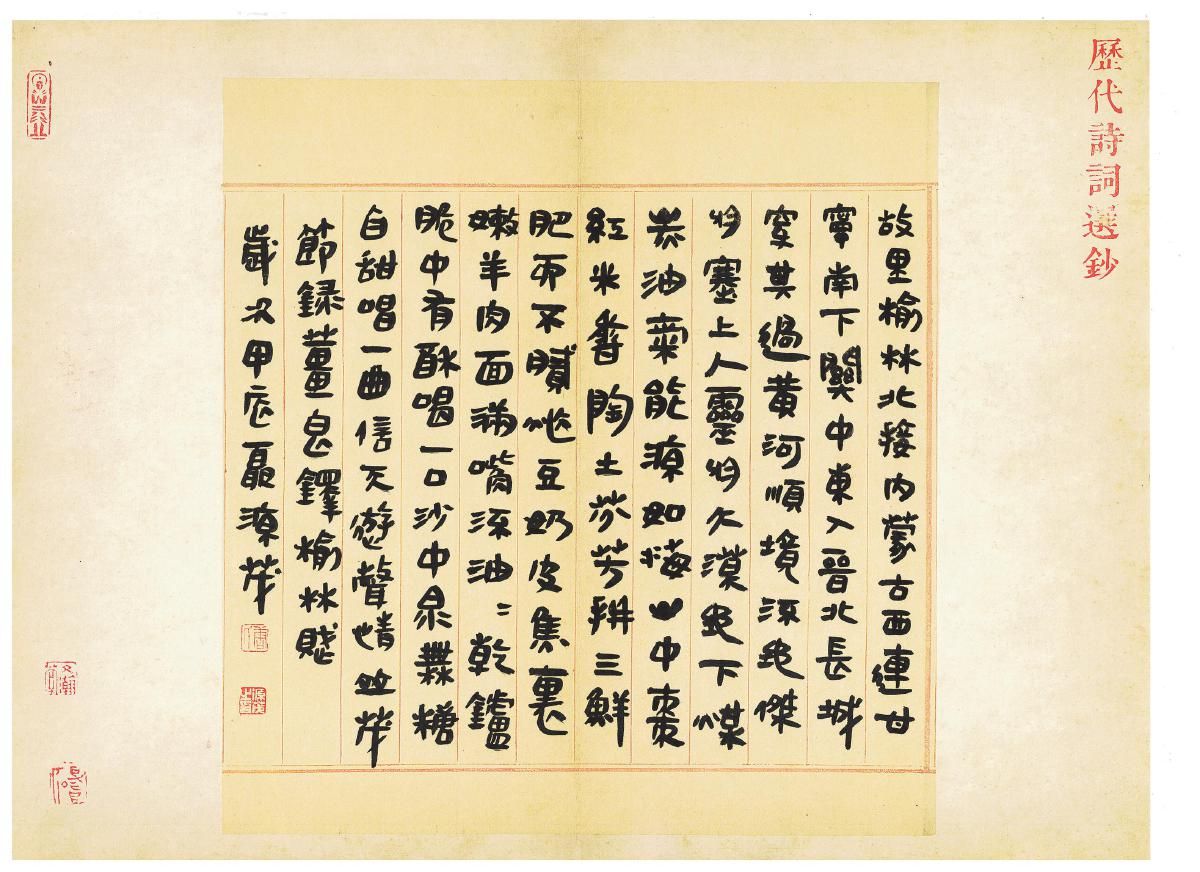 歷代詩詞選鈔
故里榆林北接内蒙古西連甘
寧南下關中東入晉北長城
穿其過黃河順境流地傑
物塞上人靈物大漠地下煤
炭油氣能源如海山中棗
紅米香陶土芬芳拼三鮮
肥而不膩吃豆奶皮焦裏
嫩羊肉面滿嘴流油〻乾鑪
脆中有酥喝一口沙中泉無糖
自甜唱一曲信天遊聲情並茂
節錄董息鐸榆林賦
歲次甲辰聶源茂